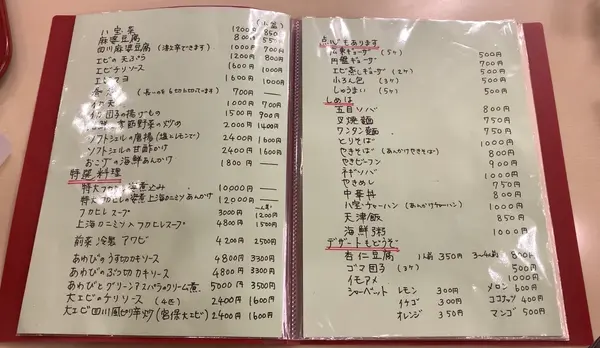 (小盆)
八宝菜 1200円 850
麻婆豆腐 800円 550
四川麻婆豆腐 (激辛できます) 1000円 700円
エビの天ぷら 1200円 800円
エビチリソース 1600円 1000円
エビマヨ 1600円 1000円
春巻 700円
イカ天 1000円 700円
団子の揚げもの 1500円 1000円
季節野菜の炒め 2000円 1400円
ソフトシェルの唐揚 (塩とレモンで) 2400円 1600円
ソフトシェルの甘酢かけ 2400円 1600円
おこげの海鮮あんかけ 1800円
特産料理
特大フカヒレ 10000円
特大フカヒレの姿煮 上海カニミソ あんかけ 12000円
フカヒレスープ 3000円 1200円
上海カニミソ入フカヒレスープ 4800円 1500円
前菜 冷製 アワビ 4200円 2500円
あわびのうす切カキソース 4800円 3300円
あわびのぶつ切カキソース 4800円 3300円
あわびとグリーンアスパラのクリーム煮 5000円 3500円
大エビのチリソース (4匹) 2400円 1600円
大エビ四川風ピリ辛炒 (宮保大エビ) 2400円 1600円
点心もあります
広東ギョーザ (5ケ) 500円
円盤ギョーザ 500円
エビ蒸しギョーザ (2ケ) 500円
小ろん包 (3ケ) 500円
しゅうまい (5ケ) 500円
しめは
五目ソバ 800円
叉焼麺 750円
ワンタン麺 750円
とりそば 1000円
やきそば (あんかけやきそば) 800円
やきビーフン 900円
ネギソバ 1000円
やきめし 750円
中華丼 800円
八宝チャーハン (あんかけチャーハン) 1000円
天津飯 850円
海鮮粥 1000円
デザートもどうぞ
杏仁豆腐 1人前 350円 3〜4人前 800円
ゴマ団子 (3ケ) 500円
イモアメ 1000円
シャーベット レモン 300円 メロン 600円
イチゴ 300円 ココナッツ 400円
オレンジ 350円 マンゴ 500円